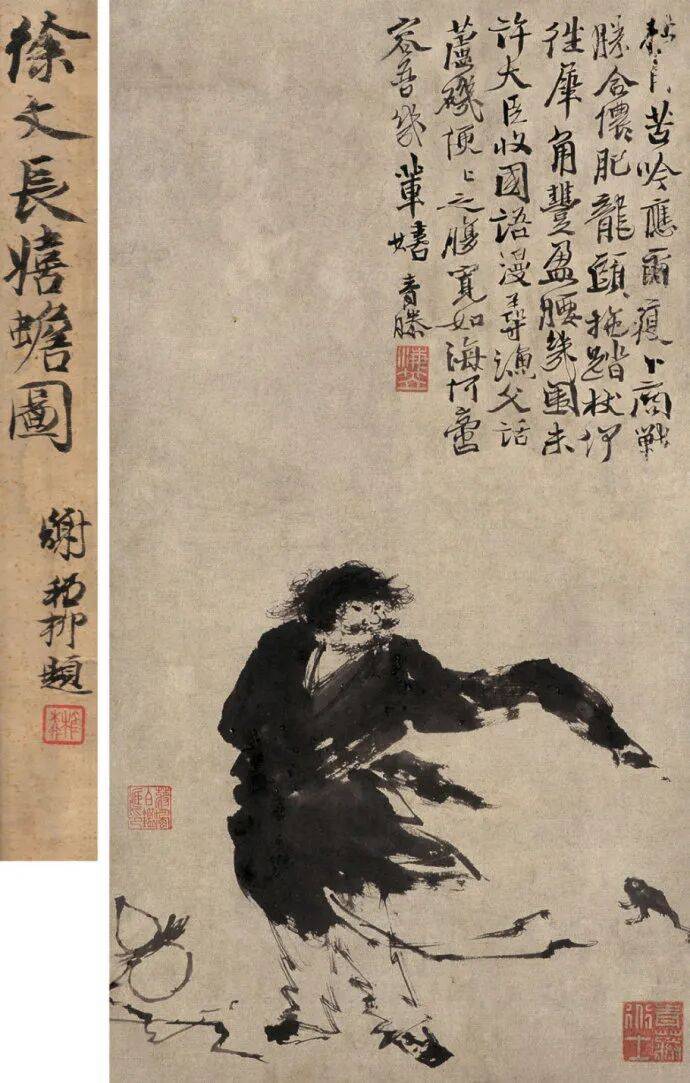 徐文長嬉蟾圖
謝稚柳題
苦吟應爾瘦卜商戰
勝合儂肥龍頭拖踏杖伊
犀角豐盈腰幾圍未
許大臣收國語漫尋漁父話
蘆磯便〻之腹寬如海何啻
容吾幾輩嬉 青藤